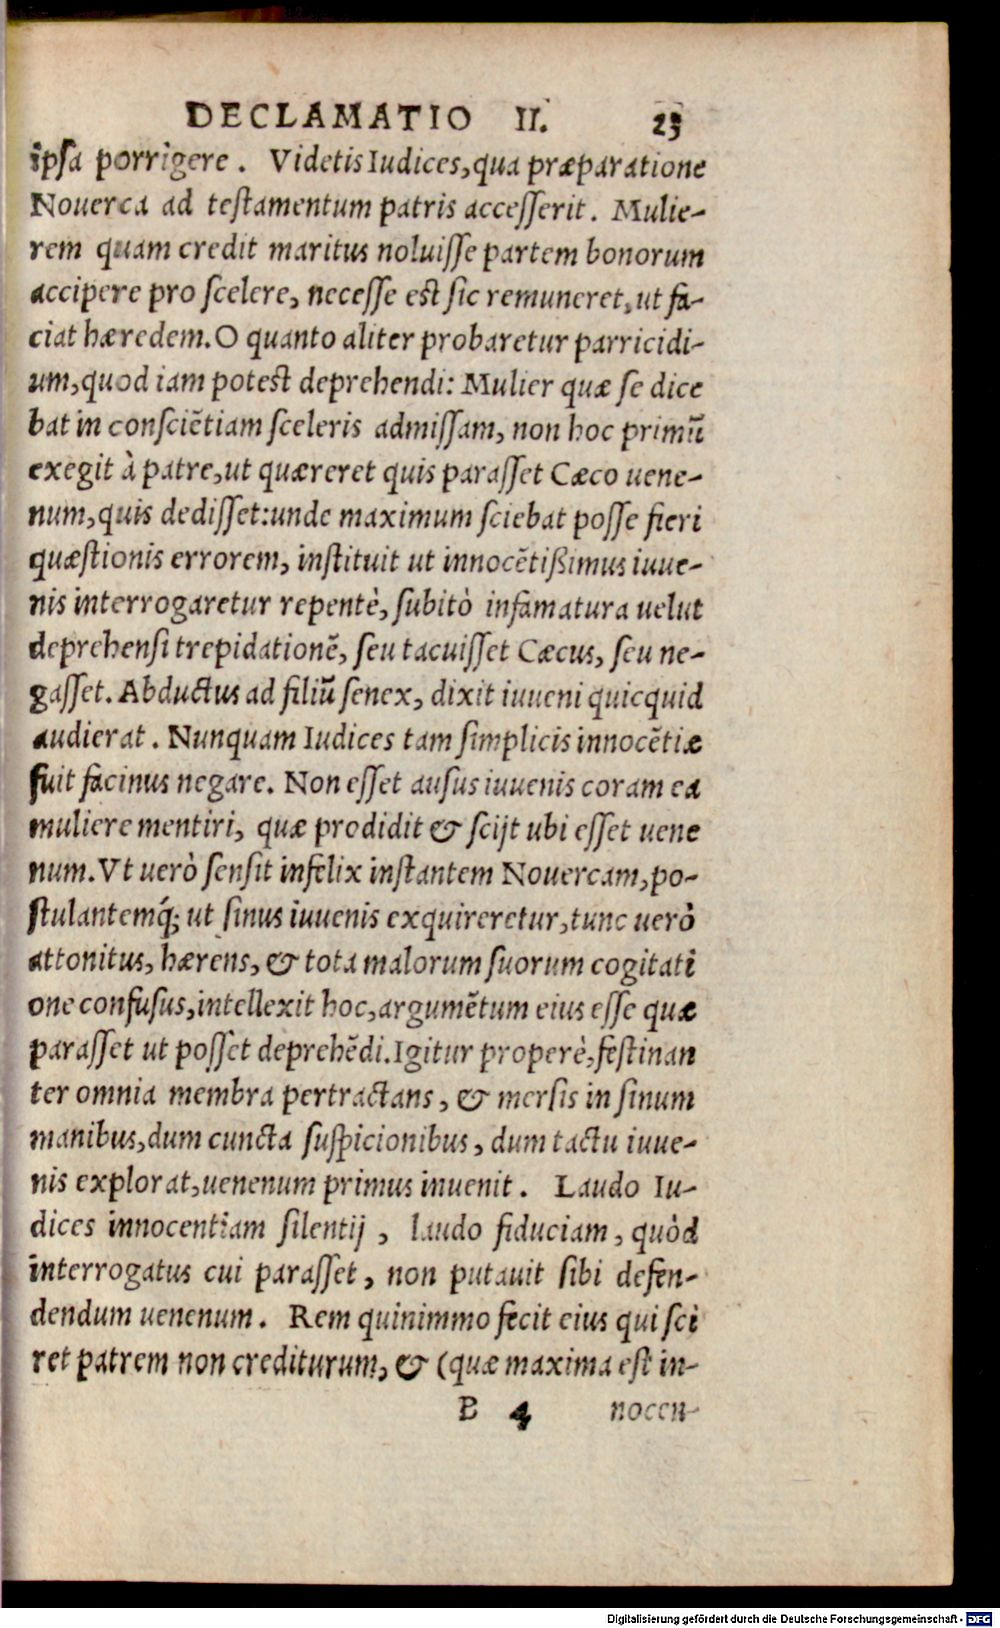 DECLAMATIO II. 23
ipsa porrigere. Videtis Iudices, qua præparatione
Nouerca ad testamentum patris accesserit. Mulie-
rem quam credit maritus noluisse partem bonorum
accipere pro scelere, necesse est sic remuneret, ut fa-
ciat hæredem. O quanto aliter probaretur parricidi-
um, quod iam potest deprehendi: Mulier quæ se dice
bat in consciẽtiam sceleris admissam, non hoc primũ
exegit à patre, ut quæreret quis parasset Cæco uene-
num, quis dedisset: unde maximum sciebat posse fieri
quæstionis errorem, instituit ut innocẽtißimus iuue-
nis interrogaretur repentè, subitò infamatura uelut
deprehensi trepidationẽ, seu tacuisset Cæcus, seu ne-
gasset. Abductus ad filiũ senex, dixit iuueni quicquid
audierat. Nunquam Iudices tam simplicis innocẽtiæ
fuit facinus negare. Non esset ausus iuuenis coram ea
muliere mentiri, quæ prodidit & scijt ubi esset uene
num. Vt uerò sensit infelix instantem Nouercam, po-
stulantemq́; ut sinus iuuenis exquireretur, tunc uerò
attonitus, hærens, & tota malorum suorum cogitati
one confusus, intellexit hoc, argumẽtum eius esse quæ
parasset ut posset deprehẽdi. Igitur properè, festinan
ter omnia membra pertractans, & mersis in sinum
manibus, dum cuncta suspicionibus, dum tactu iuue-
nis explorat, uenenum primus inuenit. Laudo Iu-
dices innocentiam silentij, laudo fiduciam, quòd
interrogatus cui parasset, non putauit sibi defen-
dendum uenenum. Rem quinimmo fecit eius qui sci
ret patrem non crediturum, & (quæ maxima est in-
B 4 nocen-
Digitalisierung gefördert durch die Deutsche Forschungsgemeinschaft - DFG